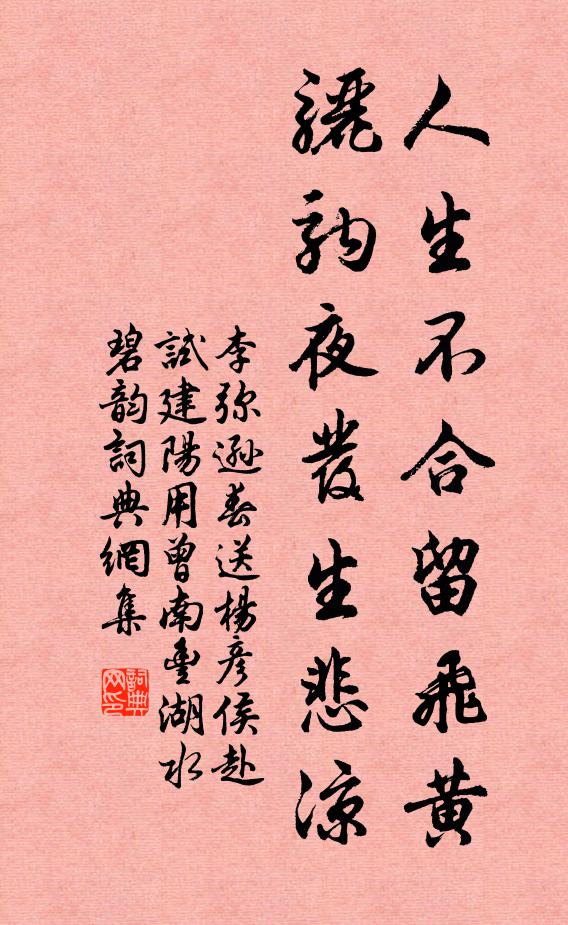 人生不合留飛黃
驪駒夜發生悲涼
李弥遜春送楊彦侯赴
試建陽用曾南豐湖水
碧韵詞典網集
詞典网印